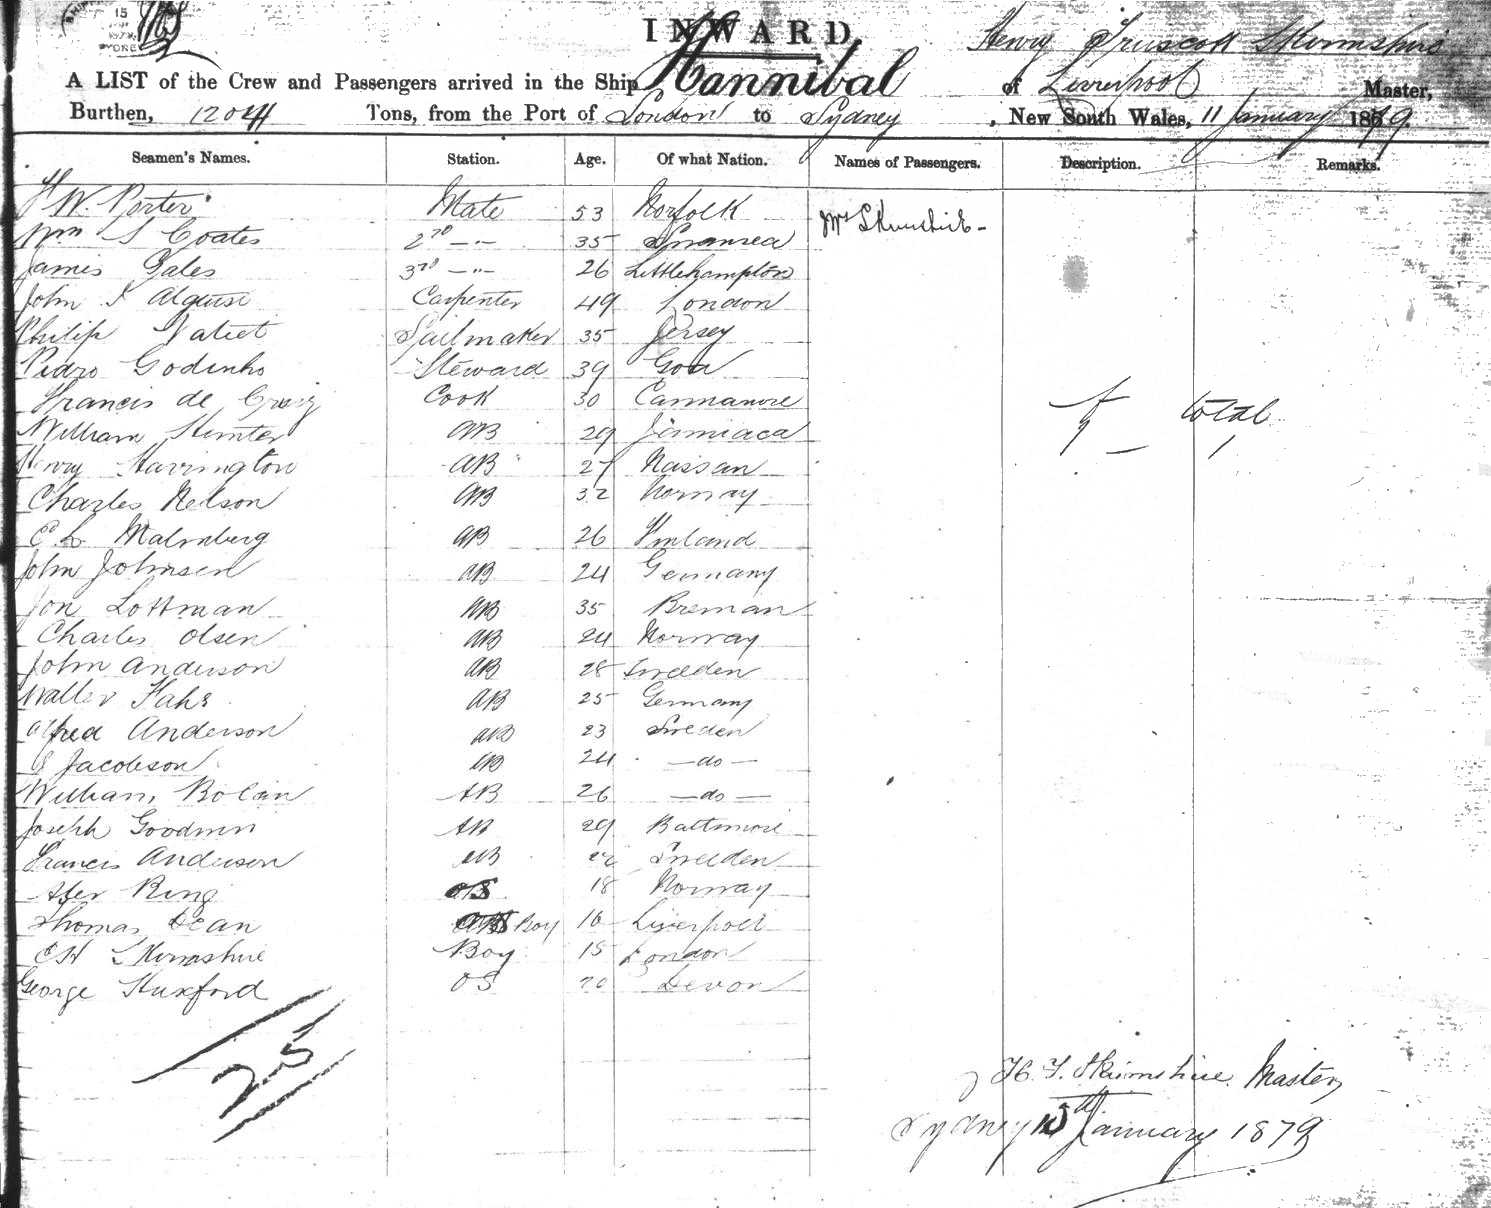 15
SYDNEY
INWARD
Henry Truscott Skrimshire
A LIST of the Crew and Passengers arrived in the Ship Hannibal of Liverpool Master,
Burthen, 1204 Tons, from the Port of London to Sydney, New South Wales, 11 January 1879
Seamen's Names. Station. Age. Of what Nation. Names of Passengers. Description. Remarks.
W. Porter Mate 53 Norfolk Mrs Skrimshire -
Wm S Coates 2nd —"— 35 Swansea
James Gales 3rd —"— 26 Littlehampton
John Carpenter 49 London
Philip Sailmaker 35 Jersey
Pedro Godinho Steward 39 Goa
Francis de Cook 30 Cannanore total
William Hunter AB 29 Jamiaca 1
Henry Harrington AB 27 Nassau
Charles Nelson AB 32 Norway
C. L. Malmberg AB 26 Finland
John Johnsen AB 24 Germany
Jon Lottman AB 35 Breman
Charles Olsen AB 24 Norway
John Anderson AB 28 Sweeden
Walter Fahs AB 25 Germany
Alfred Anderson AB 23 Sweden
Jacobson AB 24 —do—
William Bolin AB 26 —do—
Joseph Goodwin AB 29 Baltimore
Francis Anderson AB Sweeden
Ring OS 18 Norway
Thomas Dean Boy 16 Liverpool
C H Skrimshire Boy 15 London
George Huxford OS 20 Devon
25
H. T. Skrimshire Master
Sydney 15th January 1879